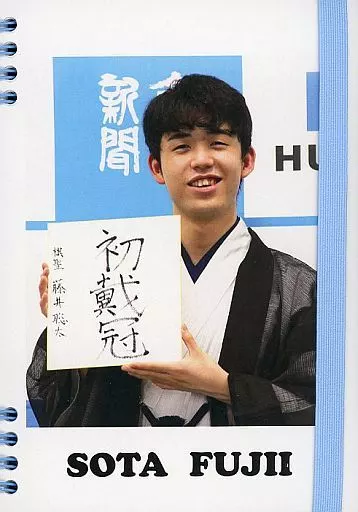 新聞
HU
初戴冠
棋聖 藤井聡太
SOTA FUJII